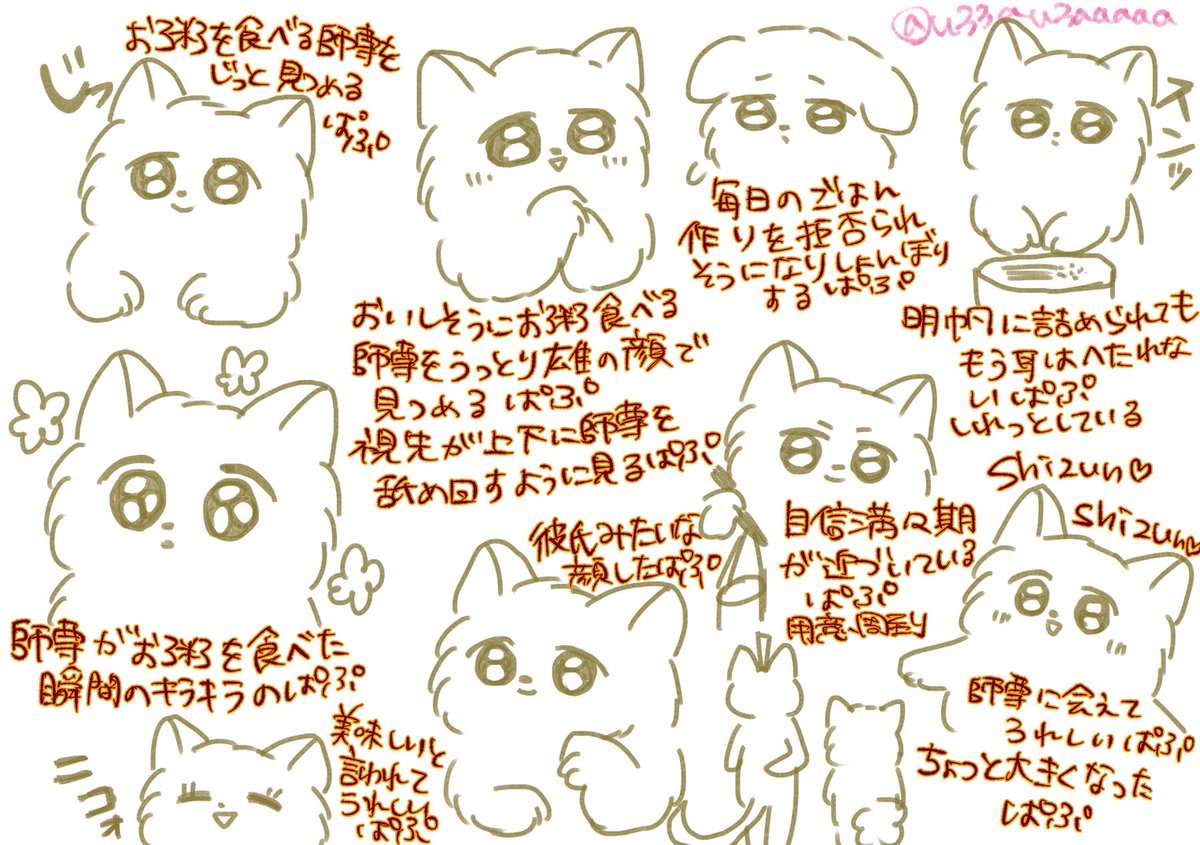 @u33au3aaaaa
お粥を食べる師尊を
じっと見つめる
ぱぷ
じっ
毎日のごはん
作りを拒否られ
そうになりしょんぼり
する ぱぷ
スンッ
明帆に詰められても
もう耳はへたれな
い ぱぷ
しれっとしている
おいしそうにお粥食べる
師尊をうっとり雄の顔で
見つめる ぱぷ
視先が上下に師尊を
舐め回すように見るぱぷ
師尊がお粥を食べた
瞬間のキラキラのぱぷ
彼氏みたいな
顔したぱぷ
自信満々期
が近づいている
ぱぷ
用意周到
shizun♡
shizun♡
師尊に会えて
うれしいぱぷ
ちょっと大きくなった
ぱぷ
ニコォ
美味しいと
言われて
うれしい
ぱぷ